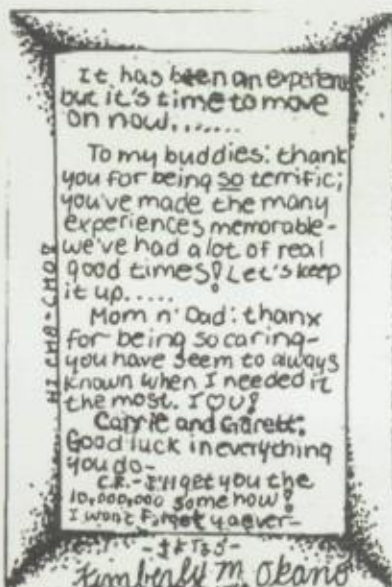 It has been an experience
but it's time to move
on now.......
To my buddies: thank
you for being so terrific;
you've made the many
experiences memorable-
we've had a lot of real
good times! Let's keep
it up.....
Mom n' Dad: thanx
for being so caring-
you have seem to always
known when I needed it
the most. I ♡ U!
Carrie and Garett:
Good luck in everything
you do-
C.R.- I'll get you the
10,000,000 somehow!
I won't forget ya ever-
Kimberly M. Okano
HI CHO-CHO!